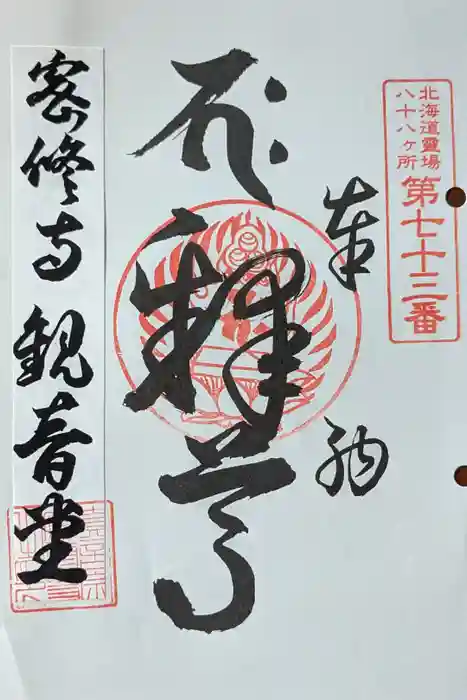 北海道靈場
八十八ヶ所
第七十三番
奉納
釋尊
密修寺 観音堂